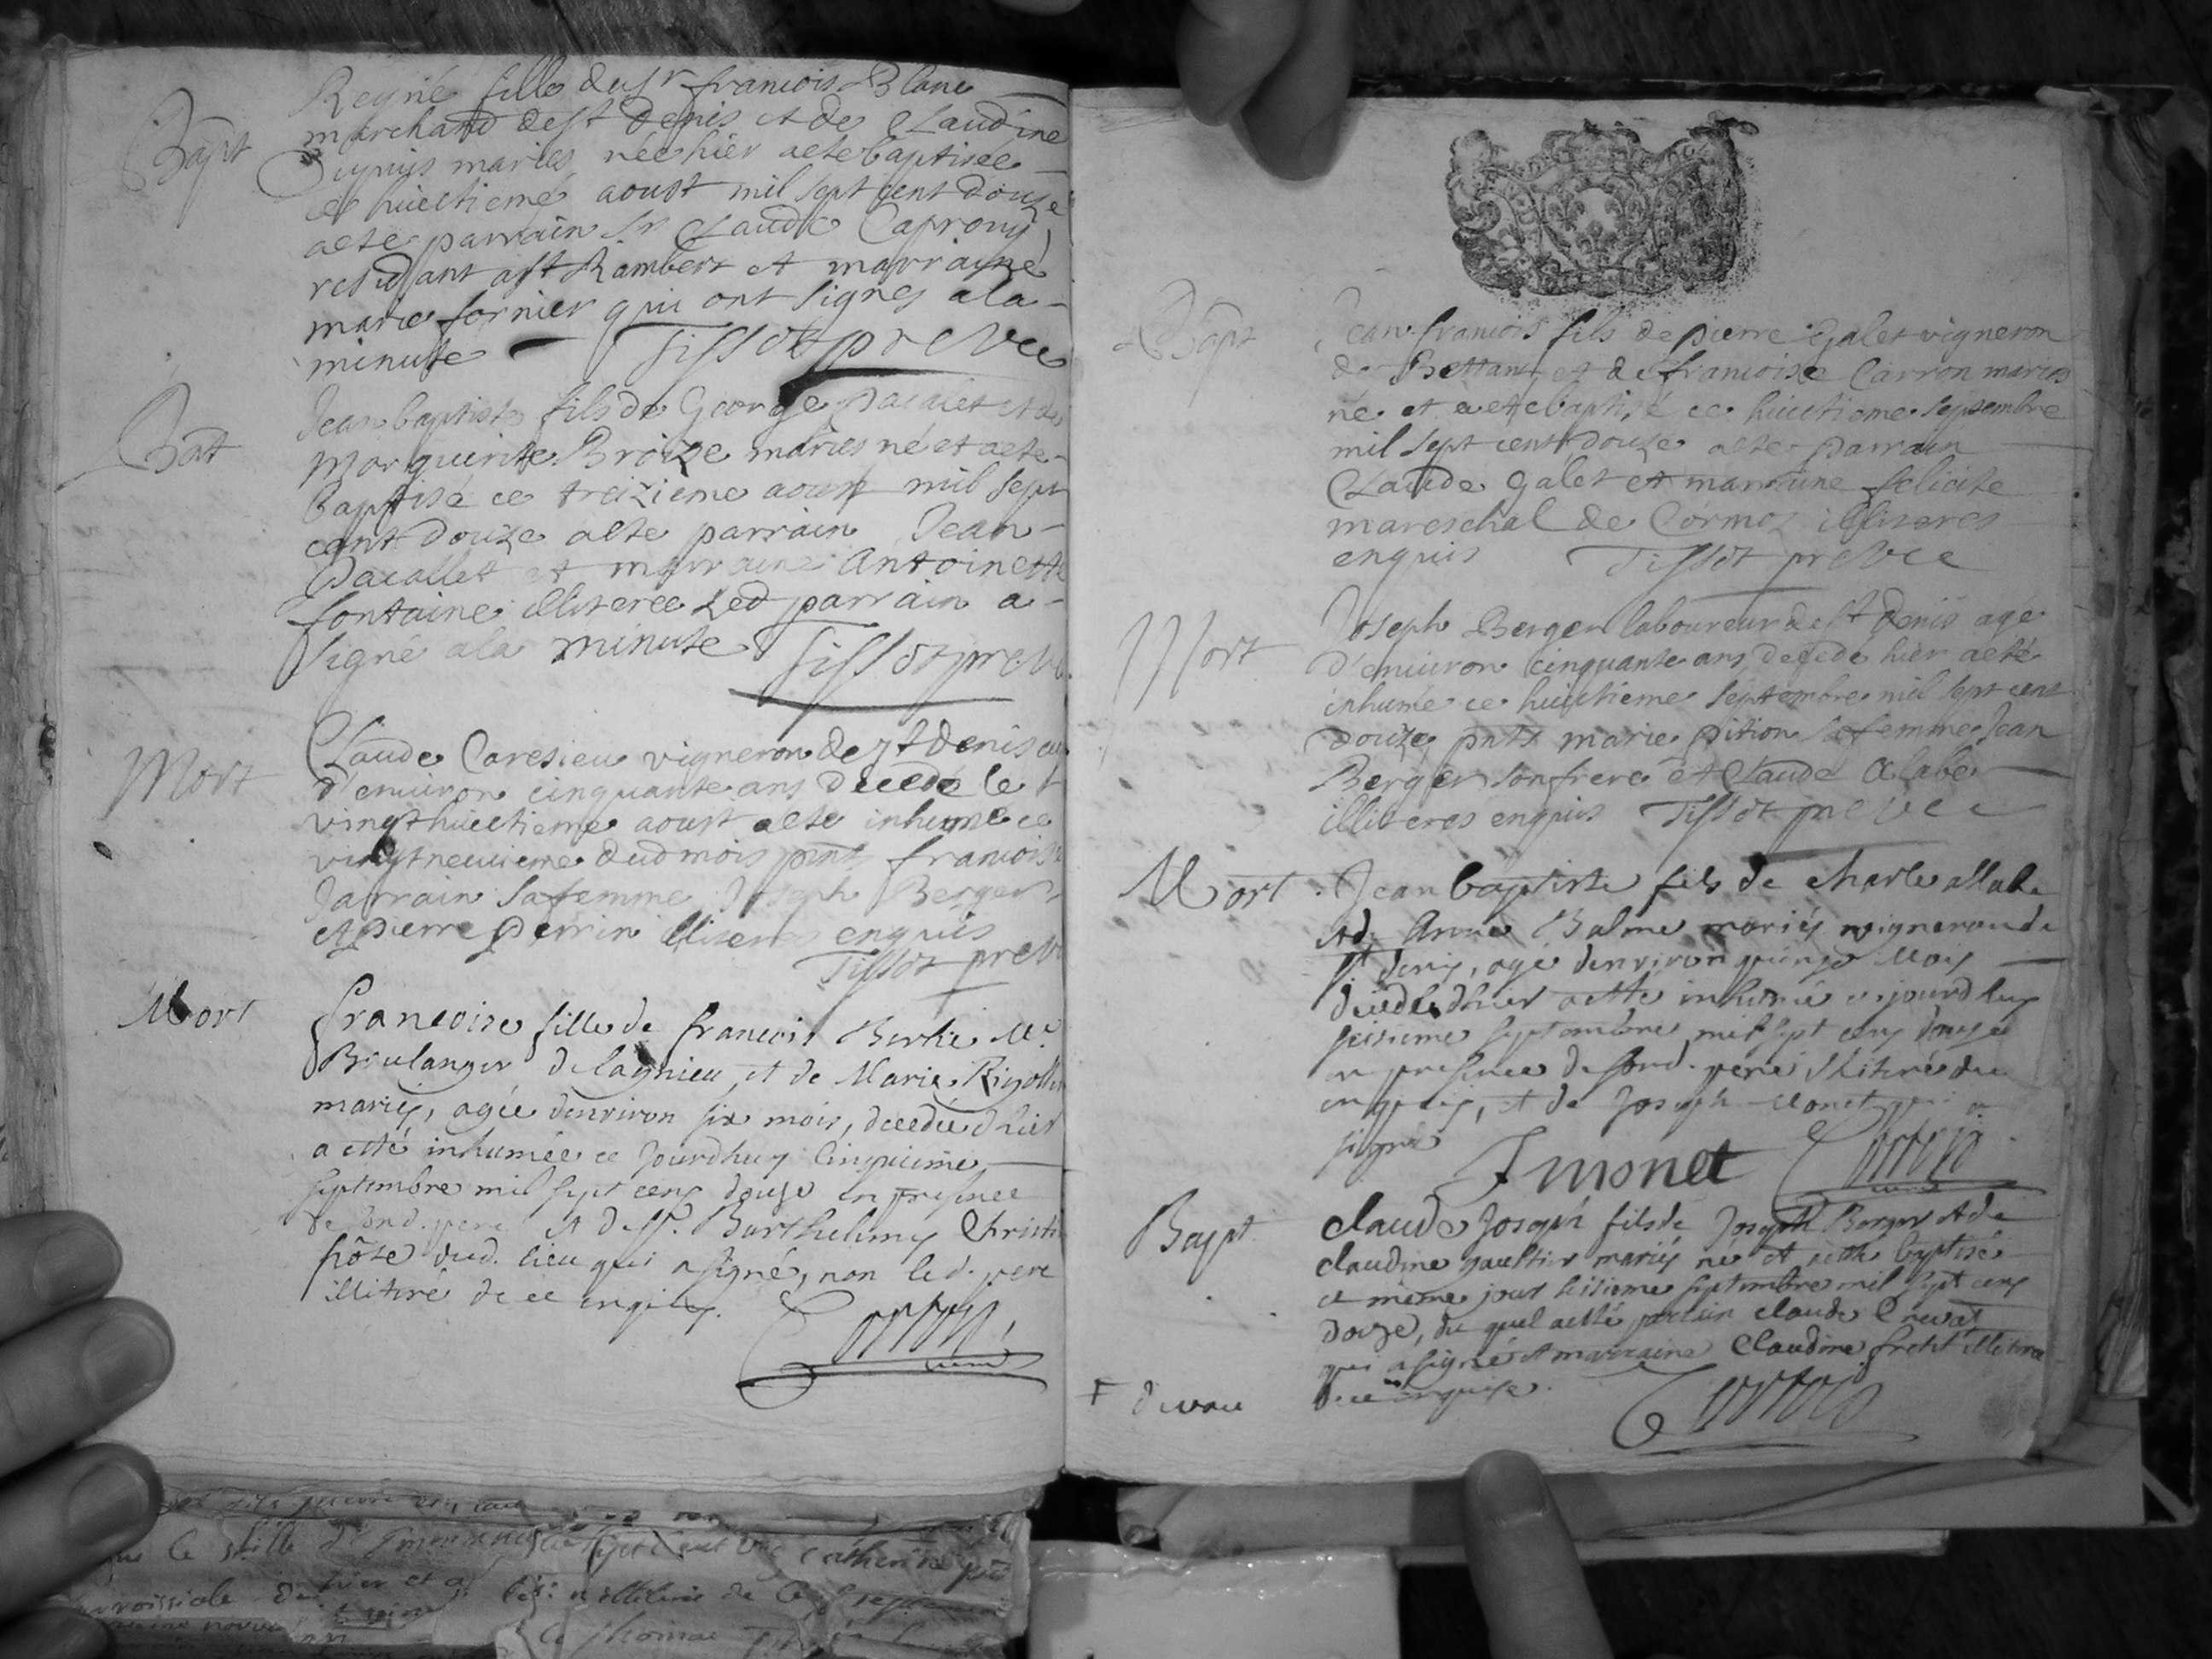 Bapt
Reyné fille du sr francois Blanc
marchand de st denis et de Claudine
mariés née hier aeté baptisée
ce huictieme aoust mil sept cent douze
aeté parrain sr Claude Caprony
residant a st Rambert et marraine
marie fornier qui ont signés a la
minute Tissot prevre
Bat
Jean baptiste fils de George pacalet et de
Marguerite Broize mariés né et aeté
Baptisé ce treizieme aoust mil sept
cent douze aeté parrain Jean
Pacallet et marraine Antoinette
fontaine illiteree led parrain a
signé a la minute Tissot prev
Mort
Claude Caresieu vigneron de st denis
d'enuiron cinquante ans decedé le
vingt huictieme aoust aeté inhumé ce
vingt neuuieme dud mois pnts francoise
Jarrain sa femme Joseph Berger
et pierre perrin illiteres enquis
Tissot prev
Mort
francoise fille de francois Me
Boulanger de lagnieu, et de Marie
mariés, agée denviron six mois, decedée d'hier
a esté inhumée ce Jourdhuy Cinquieme
septembre mil sept cens douze en presence
de sond. pere et de sr. Barthelemy Christ
hôste dud. lieu qui a signé, non led. pere
illiteré de ce enquis.
Bapt
Jean francois fils de pierre galet vigneron
de Bettant et de francoise Carron mariés
né et aeté baptisé ce huictieme septembre
mil sept cent douze aeté parrain
Claude galet et marraine felicite
mareschal de Cormoz illiteres
enquis Tissot prevre
Mort
Joseph Berger laboureur de st denis agé
d'enuiron cinquante ans decedé hier aeté
inhumé ce huictieme septembre mil sept cent
douze pnts marie pition sa femme Jean
Berger son frere et Claude Alabe
illiteres enquis Tissot prevre
Mort
Jean baptiste fils de charle allabe
et de Anne Balme mariés vigneron de
st denis, agé denviron quinze Mois
decedé d'hier a esté inhumé ce jourdhuy
seisieme septembre mil sept cens douze
en presence de sond. pere illiteré de ce
enquis, et de Joseph Monet qui a
signé
J monet
Bapt
Claude Joseph fils de Joseph Berger et de
Claudine gaultier mariés né et a esté baptisé
ce même jour seisieme septembre mil sept cens
douze, du quel a esté parrain Claude
qui a signé et marraine Claudine illiterée
de ce enquise.